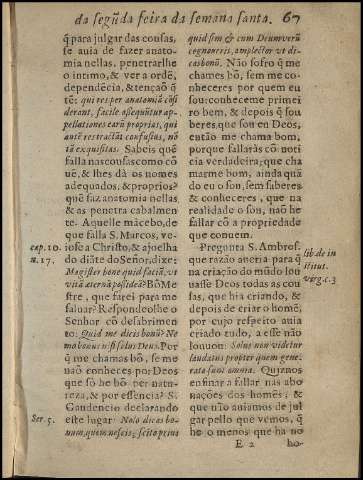 da segũda feira da semana santa. 67
q̃ para julgar das cousas,
se auia de fazer anato-
mia nellas, penetrarlhe
o intimo, & ver a ordẽ,
dependẽcia, & tençaõ q̃
tẽ: qui res per anatomiã cõsi
derant, facile assequũtur ap-
pellationes earũ proprias, qui
autẽ restractãt confusius, nõ
tã exquisitas. Sabeis quẽ
falla nas cousas como cõ
uẽ, & lhes dà os nomes
adequados, & proprios?
quẽ faz anatomia nellas
& as penetra cabalmen
te. Aquelle mãcebo, de
que falla S. Marcos, ve-
cap. 10. iose a Christo, & ajoelha
n. 17. do diãte do Señor, dize:
Magister bone quid faciã, vt
vitã æternã possideã? Bõ Me
stre, que farei para me
saluar? Respondeolhe o
Senhor cõ desabrimen
to: Quid me dicis bonũ? Ne
mo bonus nisi solus Deus. Por
q̃ me chamas bõ, se me
naõ conheces por Deos
que só he bõ per natu-
reza, & por essencia? S.
Gaudencio declarando
Ser. 5. este lugar: Noli dicas bo-
num, quem nescis; scito prius
quid sim & cum Deum verũ
cognoueris, amplector vt di-
cas bonũ. Não sofro q̃ me
chames bõ, sem me co-
nheceres por quem eu
sou: conheceme primei
ro bem, & depois q̃ sou
beres que sou eu Deos,
então me chama bom,
porque fallarás cõ noti
cia verdadeira; que cha
marme bom, ainda quã
do eu o son, sem saberes
& conheceres, que na
realidade o son, naõ he
fallar cõ a propriedade
que conuem.
Pregunta S. Ambros.
que razão aueria para q̃ lib. de in
na criação do mũdo lou stitut.
uasse Deos todas as cou virg. c. 3
sas, que hia criando, &
depois de criar o homẽ,
por cujo respeito auia
criado tudo, a esse não
louuou: Solus non videtur
laudatus propter quem gene-
rata sunt omnia. Quiznos
ensinar a fallar nas abo
nações dos homẽs; &
que não auiamos de jul
gar pello que vemos, q̃
he o menos que ha no
E 2 ho-